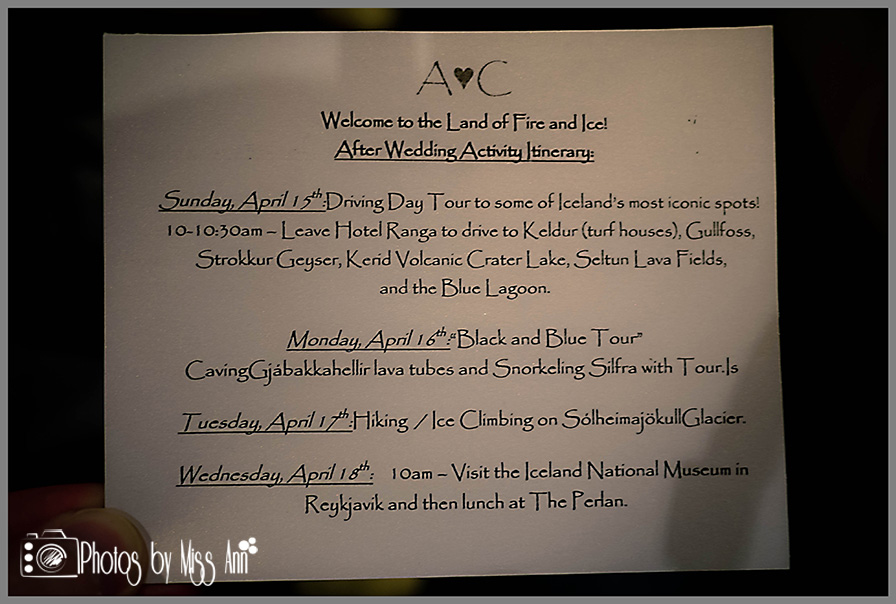 A♥C
Welcome to the Land of Fire and Ice!
After Wedding Activity Itinerary:
Sunday, April 15th:Driving Day Tour to some of Iceland's most iconic spots!
10-10:30am – Leave Hotel Ranga to drive to Keldur (turf houses), Gullfoss,
Strokkur Geyser, Kerid Volcanic Crater Lake, Seltun Lava Fields,
and the Blue Lagoon.
Monday, April 16th:"Black and Blue Tour"
CavingGjábakkahellir lava tubes and Snorkeling Silfra with Tour.Is
Tuesday, April 17th:Hiking / Ice Climbing on SólheimajökullGlacier.
Wednesday, April 18th: 10am – Visit the Iceland National Museum in
Reykjavik and then lunch at The Perlan.
Photos by Miss Ann